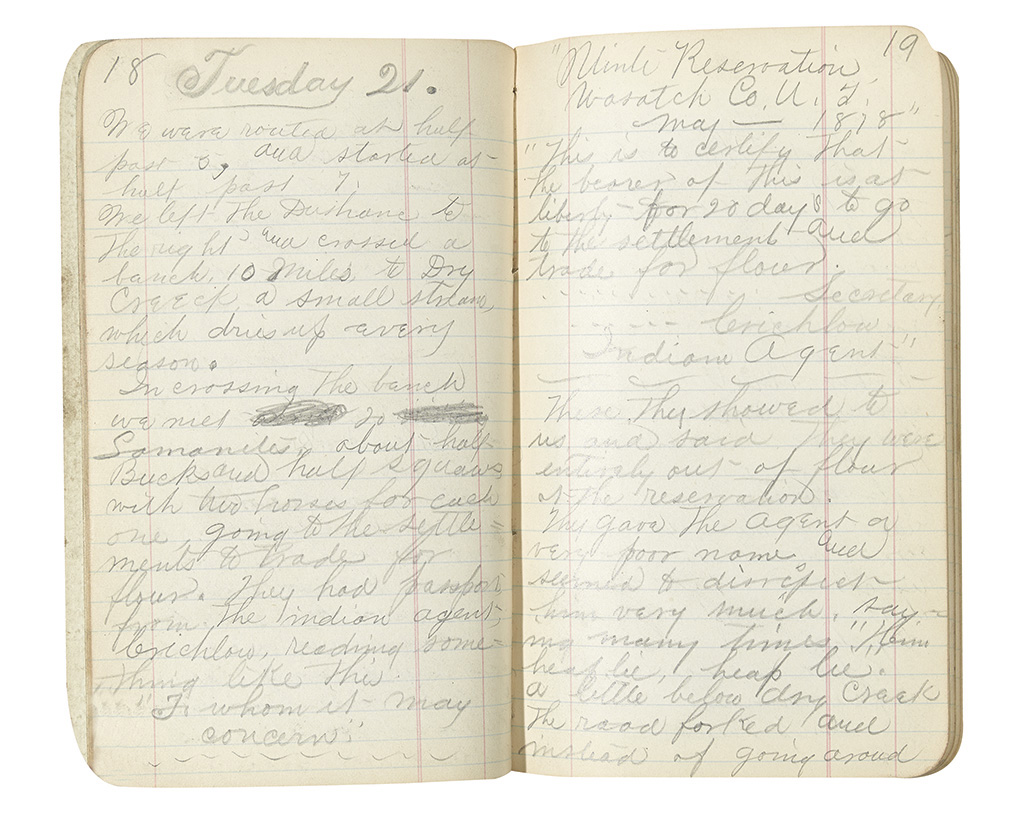 18
Tuesday 21.
We were routed at half
past 5, and started at
half past 7.
We left the Dushane to
the right and crossed a
banch. 10 Miles to Dry
Creeck, a small stream,
which dries up every
season.
In crossing the banch
we met 20
about half
Bucks and half squaws
with two horses for each
one, going to the settle=
ments to trade for
flour. They had passport
from the indian agent,
Crichlow, reading some=
thing like this.
"To whom it may
concern"
19
Reservation
Wasatch Co. U. T.
May — 1878"
"This is to certify that
the bearer of this is at
liberty for 20 days to go
to the settlement and
trade for flour.
Secretary
Crichlow
Indian Agent"
These they showed to
us and said they were
entirely out of flour
at the reservation.
They gave the agent a
very poor name and
seemed to disrespect
him very much, say=
ing many times "Him
heap lie, heap lie.
a little below dry Creek
the road forked and
instead of going aroud